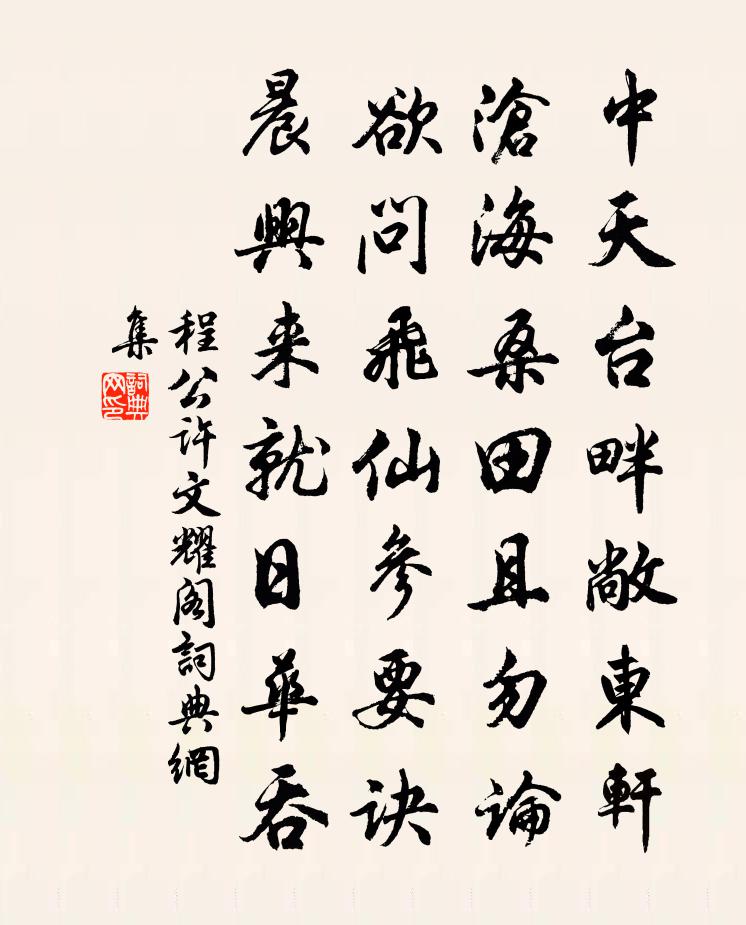 中天台畔敞東軒
滄海桑田且勿論
欲問飛仙參要訣
晨興来就日華吞
程公許文耀閣詞典網
集
詞典網印